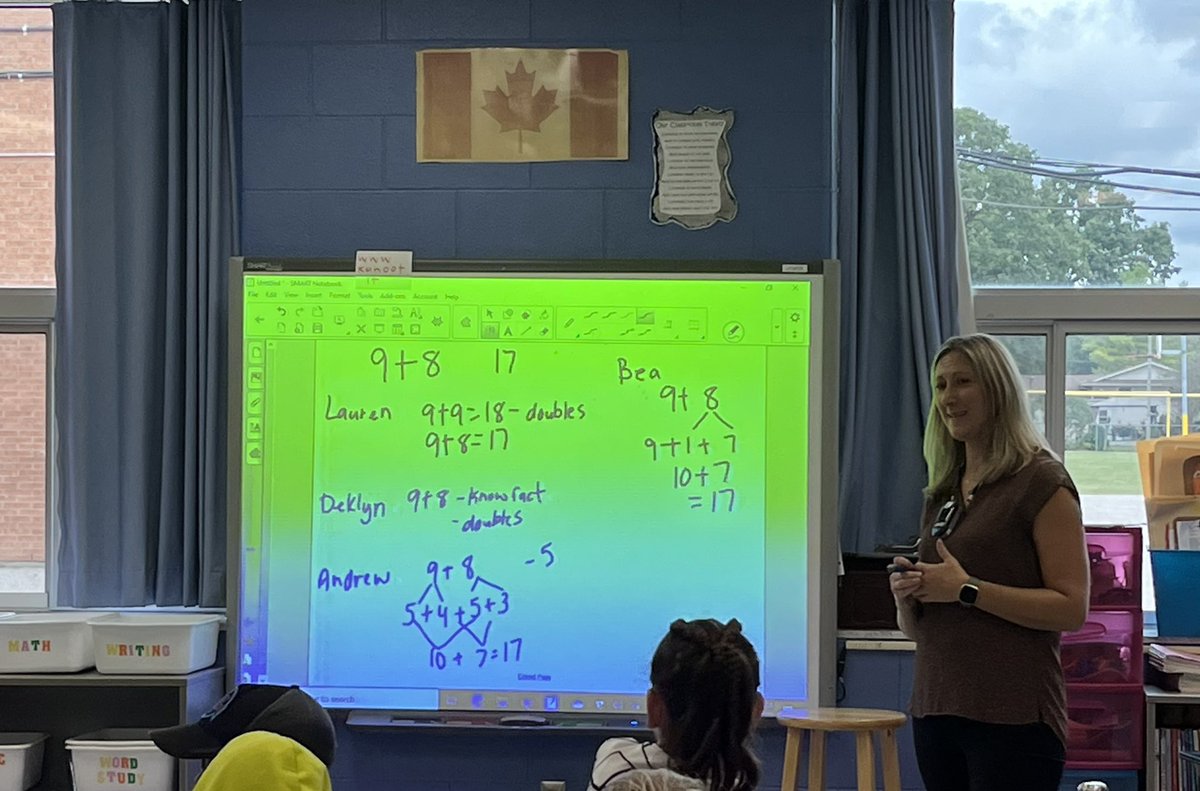 www
kahoot
it
Untitled* - SMART Notebook
File Edit View Insert Format Tools Add-ons Account Help
9+8 17
Lauren 9+9=18 - doubles
9+8=17
Deklyn 9+8 - know fact
- doubles
Andrew 9+8 - 5
5+4+5+3
10+7=17
Bea
9+8
9+1+7
10+7
=17
Extend Page
to search
MATH
WRITING
WORD
STUDY